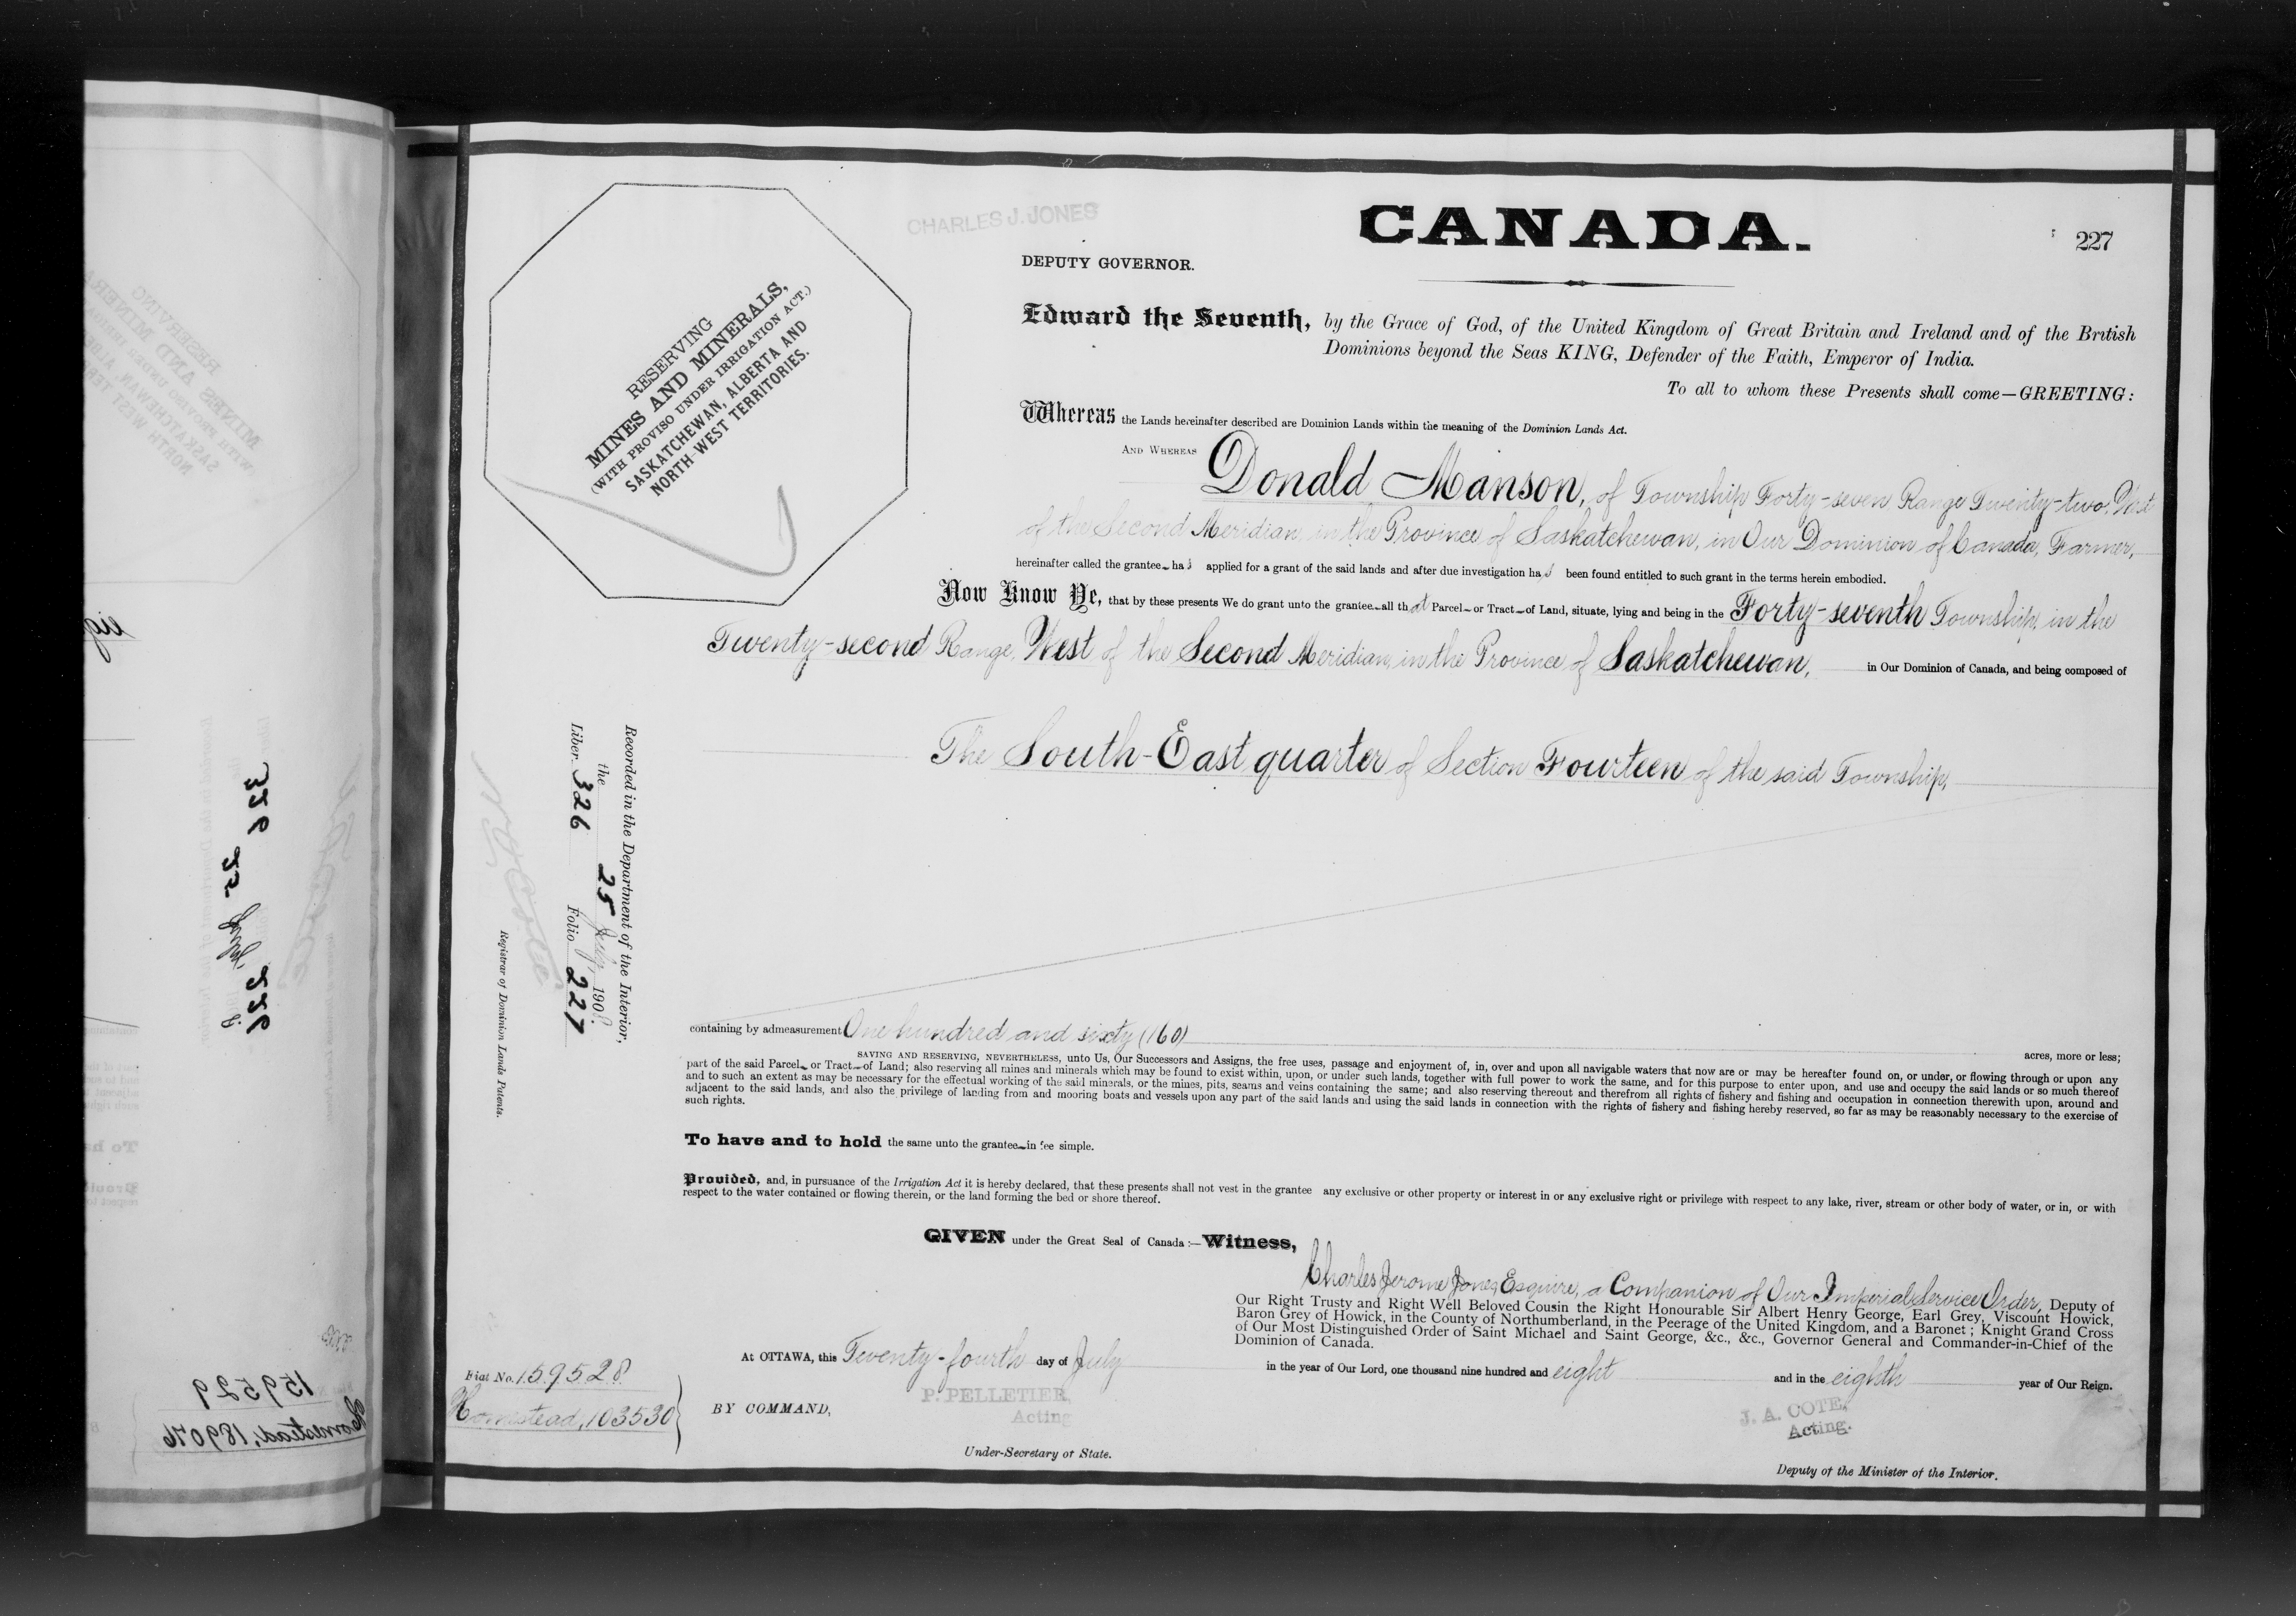 CHARLES J. JONES
CANADA.
227
DEPUTY GOVERNOR.
RESERVING
MINES AND MINERALS,
(WITH PROVISO UNDER IRRIGATION ACT.)
SASKATCHEWAN, ALBERTA AND
NORTH-WEST TERRITORIES.
Edward the Seventh, by the Grace of God, of the United Kingdom of Great Britain and Ireland and of the British
Dominions beyond the Seas KING, Defender of the Faith, Emperor of India.
To all to whom these Presents shall come—GREETING:
Whereas the Lands hereinafter described are Dominion Lands within the meaning of the Dominion Lands Act.
AND WHEREAS Donald Manson, of Township Forty-seven Range Twenty-two, West
of the Second Meridian, in the Province of Saskatchewan, in Our Dominion of Canada, Farmer,
hereinafter called the grantee has applied for a grant of the said lands and after due investigation has been found entitled to such grant in the terms herein embodied.
Now Know Ye, that by these presents We do grant unto the grantee all that Parcel or Tract of Land, situate, lying and being in the Forty-seventh Township, in the
Twenty-second Range, West of the Second Meridian, in the Province of Saskatchewan, in Our Dominion of Canada, and being composed of
The South-East quarter of Section Fourteen of the said Township,
Recorded in the Department of the Interior,
the 25 July, 1908.
Liber 326 Folio 227
Registrar of Dominion Lands Patents.
containing by admeasurement One hundred and sixty (160) acres, more or less;
SAVING AND RESERVING, NEVERTHELESS, unto Us, Our Successors and Assigns, the free uses, passage and enjoyment of, in, over and upon all navigable waters that now are or may be hereafter found on, or under, or flowing through or upon any
part of the said Parcel or Tract of Land; also reserving all mines and minerals which may be found to exist within, upon, or under such lands, together with full power to work the same, and for this purpose to enter upon, and use and occupy the said lands or so much thereof
and to such an extent as may be necessary for the effectual working of the said minerals, or the mines, pits, seams and veins containing the same; and also reserving thereout and therefrom all rights of fishery and fishing and occupation in connection therewith upon, around and
adjacent to the said lands, and also the privilege of landing from and mooring boats and vessels upon any part of the said lands and using the said lands in connection with the rights of fishery and fishing hereby reserved, so far as may be reasonably necessary to the exercise of
such rights.
To have and to hold the same unto the grantee in fee simple.
Provided, and, in pursuance of the Irrigation Act it is hereby declared, that these presents shall not vest in the grantee any exclusive or other property or interest in or any exclusive right or privilege with respect to any lake, river, stream or other body of water, or in, or with
respect to the water contained or flowing therein, or the land forming the bed or shore thereof.
GIVEN under the Great Seal of Canada:—Witness,
Charles Jerome Jones, Esquire, a Companion of Our Imperial Service Order, Deputy of
Our Right Trusty and Right Well Beloved Cousin the Right Honourable Sir Albert Henry George, Earl Grey, Viscount Howick,
Baron Grey of Howick, in the County of Northumberland, in the Peerage of the United Kingdom, and a Baronet; Knight Grand Cross
of Our Most Distinguished Order of Saint Michael and Saint George, &c., &c., Governor General and Commander-in-Chief of the
Dominion of Canada.
At OTTAWA, this Twenty-fourth day of July in the year of Our Lord, one thousand nine hundred and eight and in the eighth year of Our Reign.
Fiat No. 159528
Homestead, 103530
BY COMMAND,
P. PELLETIER,
Acting
Under-Secretary of State.
J. A. COTE,
Acting.
Deputy of the Minister of the Interior.
326 25 July 226
159529
Homestead, 189076